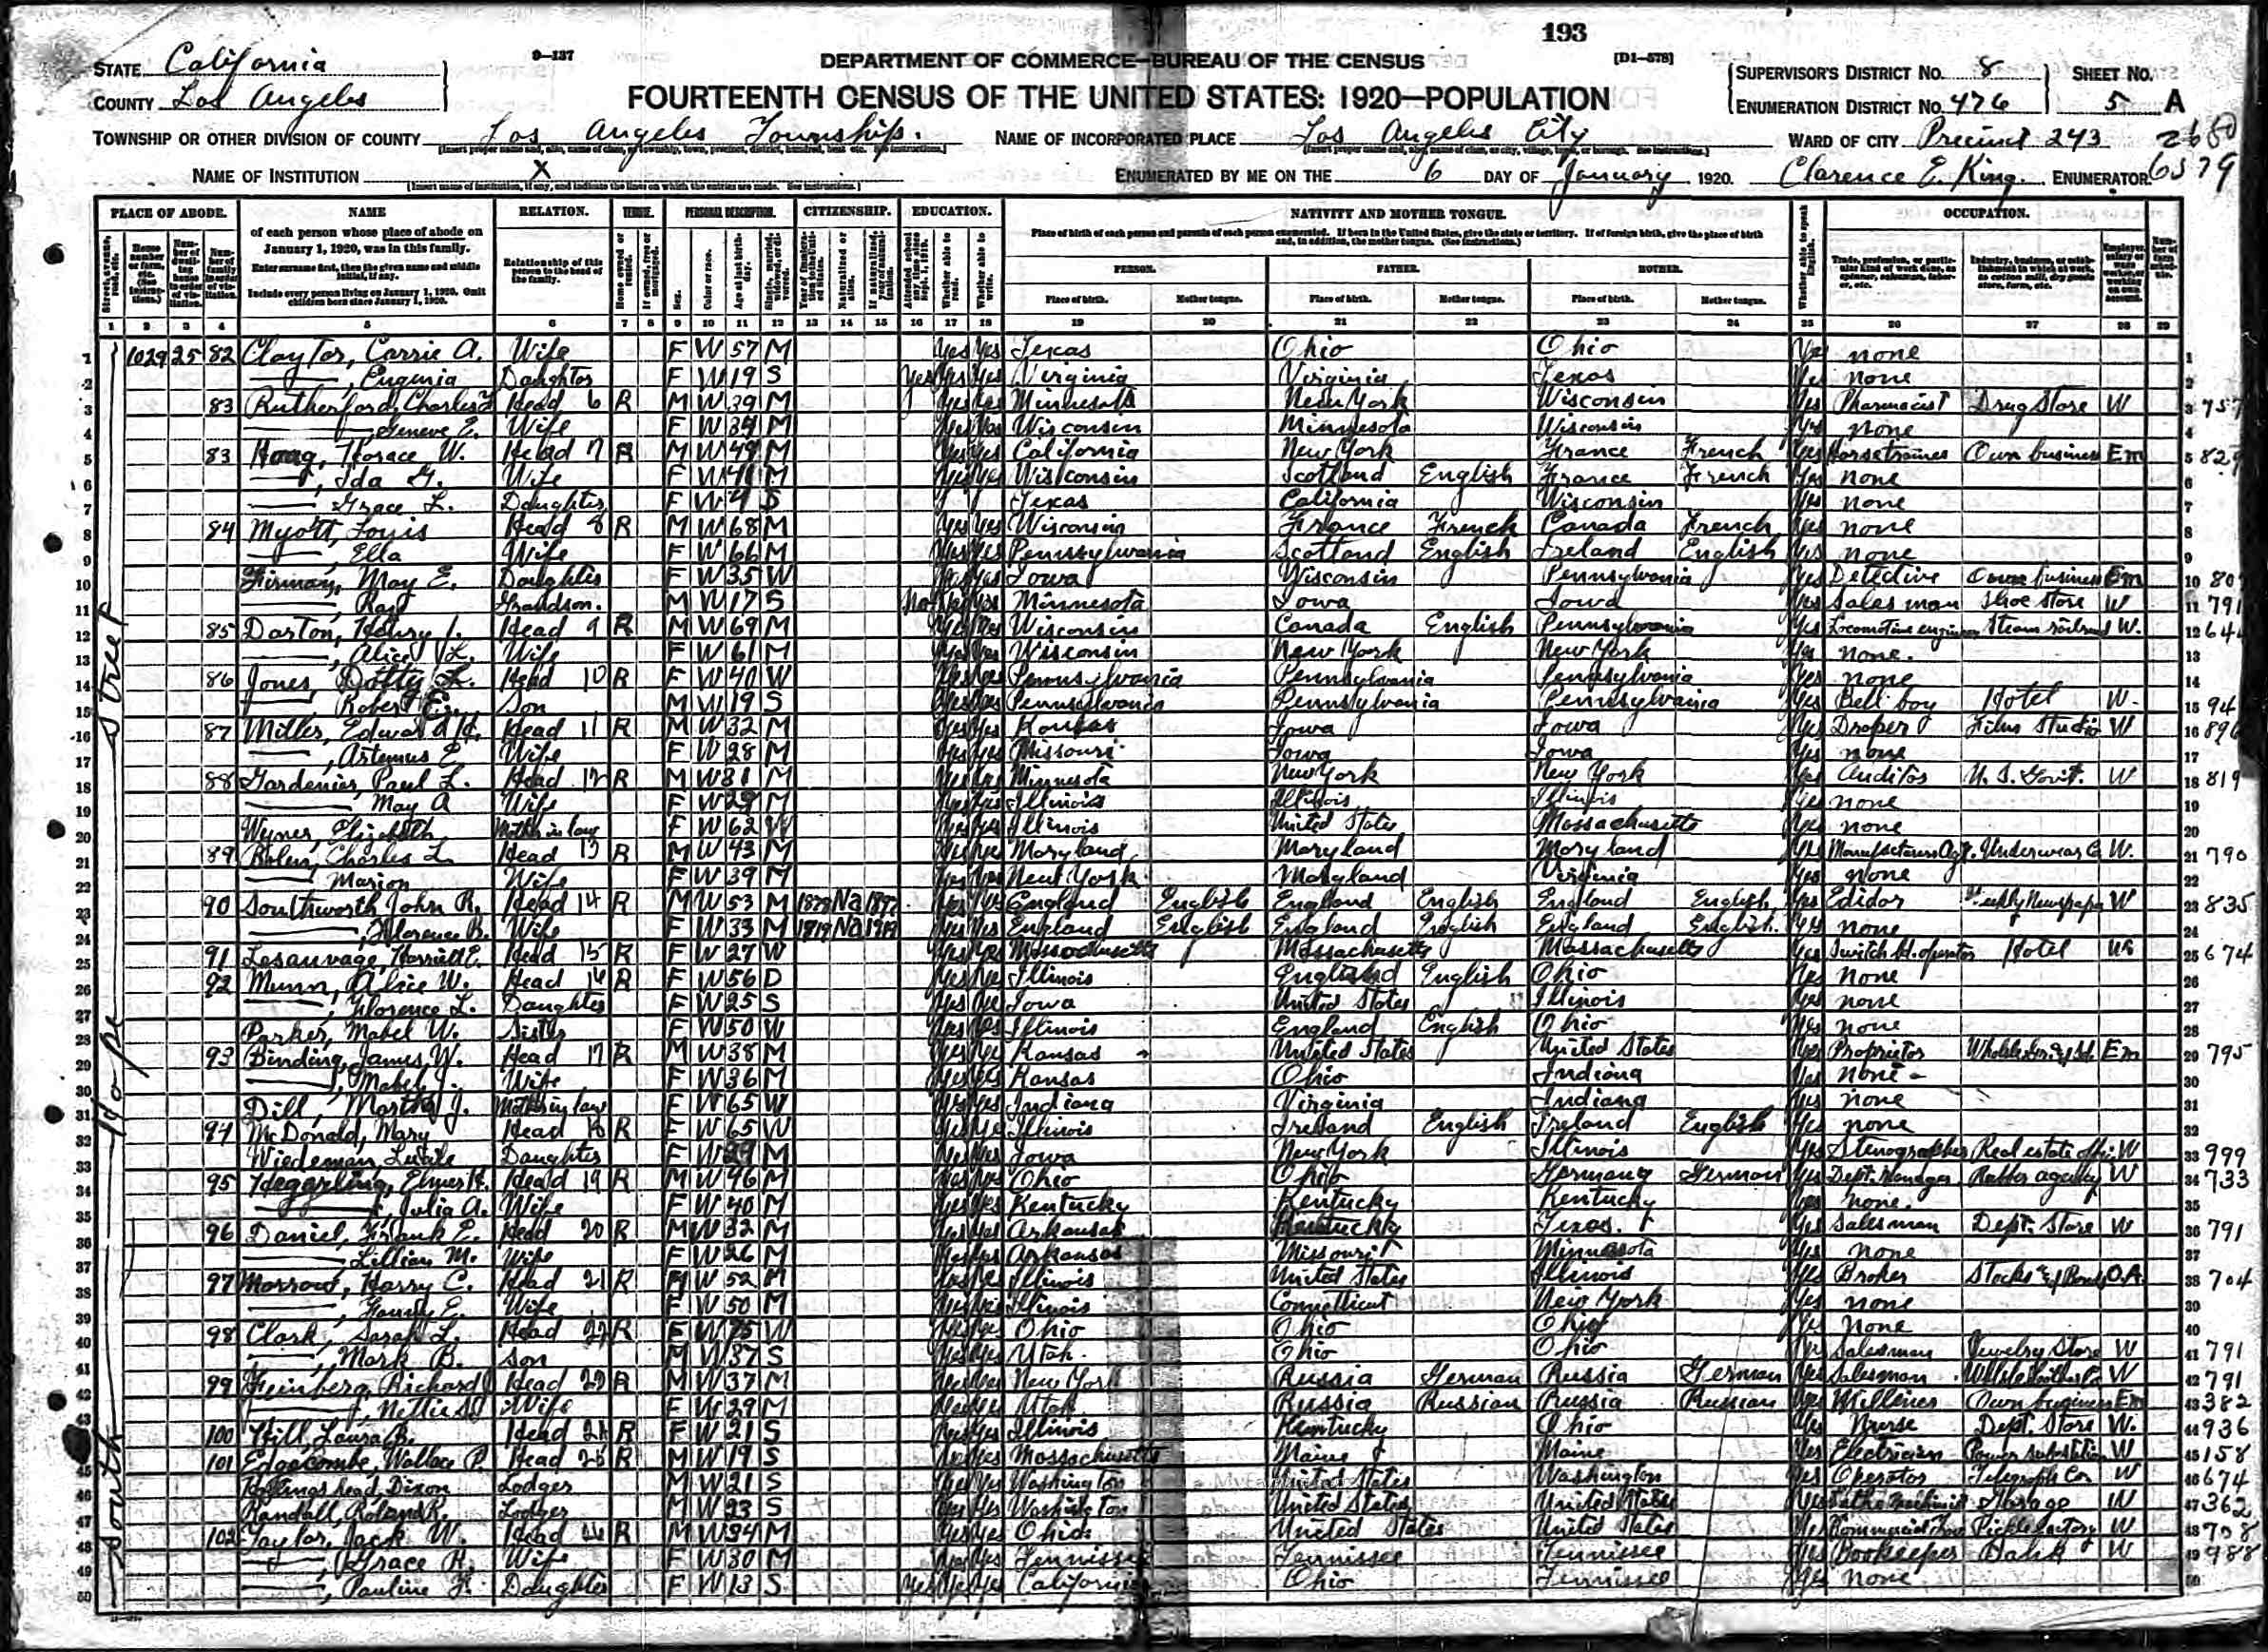 193
9—137
DEPARTMENT OF COMMERCE—BUREAU OF THE CENSUS
[D1—578]
STATE California
COUNTY Los Angeles
FOURTEENTH CENSUS OF THE UNITED STATES: 1920—POPULATION
SUPERVISOR'S DISTRICT No. 8
ENUMERATION DISTRICT No. 476
SHEET No. 5 A
TOWNSHIP OR OTHER DIVISION OF COUNTY Los Angeles Township.
NAME OF INCORPORATED PLACE Los Angeles City
WARD OF CITY Precinct 243
NAME OF INSTITUTION X
ENUMERATED BY ME ON THE 6 DAY OF January 1920. Clarence E. King. ENUMERATOR.
PLACE OF ABODE. NAME RELATION. TENURE. PERSONAL DESCRIPTION. CITIZENSHIP. EDUCATION. NATIVITY AND MOTHER TONGUE. OCCUPATION.
of each person whose place of abode on January 1, 1920, was in this family.
Enter surname first, then the given name and middle initial, if any.
Include every person living on January 1, 1920. Omit children born since January 1, 1920.
Relationship of this person to the head of the family.
PERSON. FATHER. MOTHER.
Place of birth. Mother tongue. Place of birth. Mother tongue. Place of birth. Mother tongue.
1 2 3 4 5 6 7 8 9 10 11 12 13 14 15 16 17 18 19 20 21 22 23 24 25 26 27 28 29
South Hope Street
1 1029 25 82 Claytor, Carrie A. Wife F W 57 M Yes Yes Texas Ohio Ohio Yes none
2 , Eugenia Daughter F W 19 S Yes Yes Yes Virginia Virginia Texas Yes none
3 83 Rutherford, Charles Head 6 R M W 39 M Yes Yes Minnesota New York Wisconsin Yes Pharmacist Drug Store W 757
4 , Geneve E. Wife F W 39 M Yes Yes Wisconsin Minnesota Wisconsin Yes none
5 83 Hoag, Horace W. Head 7 R M W 49 M Yes Yes California New York France French Yes Horsetrainer Own business Em 829
6 , Ida G. Wife F W 41 M Yes Yes Wisconsin Scotland English France French Yes none
7 Grace L. Daughter F W 4 S Texas California Wisconsin Yes none
8 84 Myott, Louis Head 8 R M W 68 M Yes Yes Wisconsin France French Canada French Yes none
9 , Ella Wife F W 66 M Yes Yes Pennsylvania Scotland English Ireland English Yes none
10 Firman, May E. Daughter F W 35 W Yes Yes Iowa Wisconsin Pennsylvania Yes Detective Own business Em 80
11 , Ray Grandson. M W 17 S No Yes Yes Minnesota Iowa Iowa Yes Salesman Shoe store W 791
12 85 Darton, Henry J. Head 9 R M W 69 M Yes Yes Wisconsin Canada English Pennsylvania Yes Locomotive engineer Steam railroad W. 644
13 , Alice L. Wife F W 61 M Yes Yes Wisconsin New York New York Yes none.
14 86 Jones, Dotty L. Head 10 R F W 40 W Yes Yes Pennsylvania Pennsylvania Pennsylvania Yes none
15 , Robert E. Son M W 19 S Yes Yes Pennsylvania Pennsylvania Pennsylvania Yes Bell boy Hotel W. 94
16 87 Miller, Edward H. Head 11 R M W 32 M Yes Yes Kansas Iowa Iowa Yes Draper Film Studio W 896
17 , Artemus E. Wife F W 28 M Yes Yes Missouri Iowa Iowa Yes none
18 88 Gardenier, Paul L. Head 12 R M W 31 M Yes Yes Minnesota New York New York Yes Auditor U. S. Govt. W 819
19 May A Wife F W 29 M Yes Yes Illinois Illinois Illinois Yes none
20 Wyner, Elizabeth Mother in law F W 62 W Yes Yes Illinois United States Massachusetts Yes none
21 89 Bolen, Charles L. Head 13 R M W 43 M Yes Yes Maryland Maryland Maryland Yes Manufacturers Agt. Underwear Co W. 790
22 Marion Wife F W 39 M Yes Yes New York Maryland Virginia Yes none
23 90 Southworth John R. Head 14 R M W 53 M 1879 Na 1897 Yes Yes England English England English England English Yes Edidor Weekly Newspaper W 835
24 , Florence B. Wife F W 33 M 1919 Na 1919 Yes Yes England English England English England English. Yes none
25 91 Lesauvage, Harriett E. Head 15 R F W 27 W Yes Yes Massachusetts Massachusetts Massachusetts Yes Switch bd. operator Hotel W 674
26 92 Munn, Alice W. Head 16 R F W 56 D Yes Yes Illinois England English Ohio Yes None
27 , Florence L. Daughter F W 25 S Yes Yes Iowa United States Illinois Yes none
28 Parker, Mabel W. Sister F W 50 W Yes Yes Illinois England English Ohio Yes none
29 93 Binding, James W. Head 17 R M W 38 M Yes Yes Kansas United States United States Yes Proprietor Em 795
30 , Mabel J. Wife F W 36 M Yes Yes Kansas Ohio Indiana Yes none
31 Dill, Martha J. Mother in law F W 65 W Yes Yes Indiana Virginia Indiana Yes none
32 94 McDonald, Mary Head 18 R F W 65 W Yes Yes Illinois Ireland English Ireland English Yes none
33 Wiedeman, Lucile Daughter F W 29 M Yes Yes Iowa New York Illinois Yes Stenographer Real estate offi. W 999
34 95 Heggerling, Elmer H. Head 19 R M W 46 M Yes Yes Ohio Ohio Germany German Yes Dept. Manager Rubber agency W 733
35 , Julia A. Wife F W 40 M Yes Yes Kentucky Kentucky Kentucky Yes none.
36 96 Daniel, Frank E. Head 20 R M W 32 M Yes Yes Arkansas Kentucky Texas. Yes Salesman Dept. Store W 791
37 Lillian M. Wife F W 26 M Yes Yes Arkansas Missouri Minnesota Yes none
38 97 Morrow, Harry C. Head 21 R M W 52 M Yes Yes Illinois United States Illinois Yes Broker Stocks & Bonds O.A. 704
39 , Fanny E. Wife F W 50 M Yes Yes Illinois Connetticut New York Yes none
40 98 Clark, Sarah L. Head 22 R F W 75 W Yes Yes Ohio Ohio Ohio Yes None
41 , Mark B. Son M W 37 S Yes Yes Utah. Ohio Ohio Yes Salesman Jewelry Store W 791
42 99 Feinberg, Richard Head 23 R M W 37 M Yes Yes New York Russia German Russia German Yes Salesman W 791
43 , Nettie Wife F W 29 M Yes Yes Utah Russia Russian Russia Russian Yes Milliner Own business Em 382
44 100 Hill, Laura B. Head 24 R F W 21 S Yes Yes Illinois Kentucky Ohio Yes Nurse Dept. Store W. 936
45 101 Edgecombe, Wallace P. Head 25 R M W 19 S Yes Yes Massachusetts Maine Maine Yes Electrician Power substation W 158
46 Hollingshead, Dixon Lodger M W 21 S Yes Yes Washington United States Washington Yes Operator Telegraph Co. W 674
47 Randall, Roland R. Lodger M W 23 S Yes Yes Washington United States United States Yes Garage W 362
48 102 Taylor, Jack W. Head 26 R M W 34 M Yes Yes Ohio United States United States Yes Pickle factory W 708
49 , Grace R. Wife F W 30 M Yes Yes Tennissee Tennissee Tennissee Yes Bookkeeper Bank W 988
50 , Pauline F. Daughter F W 13 S Yes Yes Yes California Ohio Tennissee Yes none